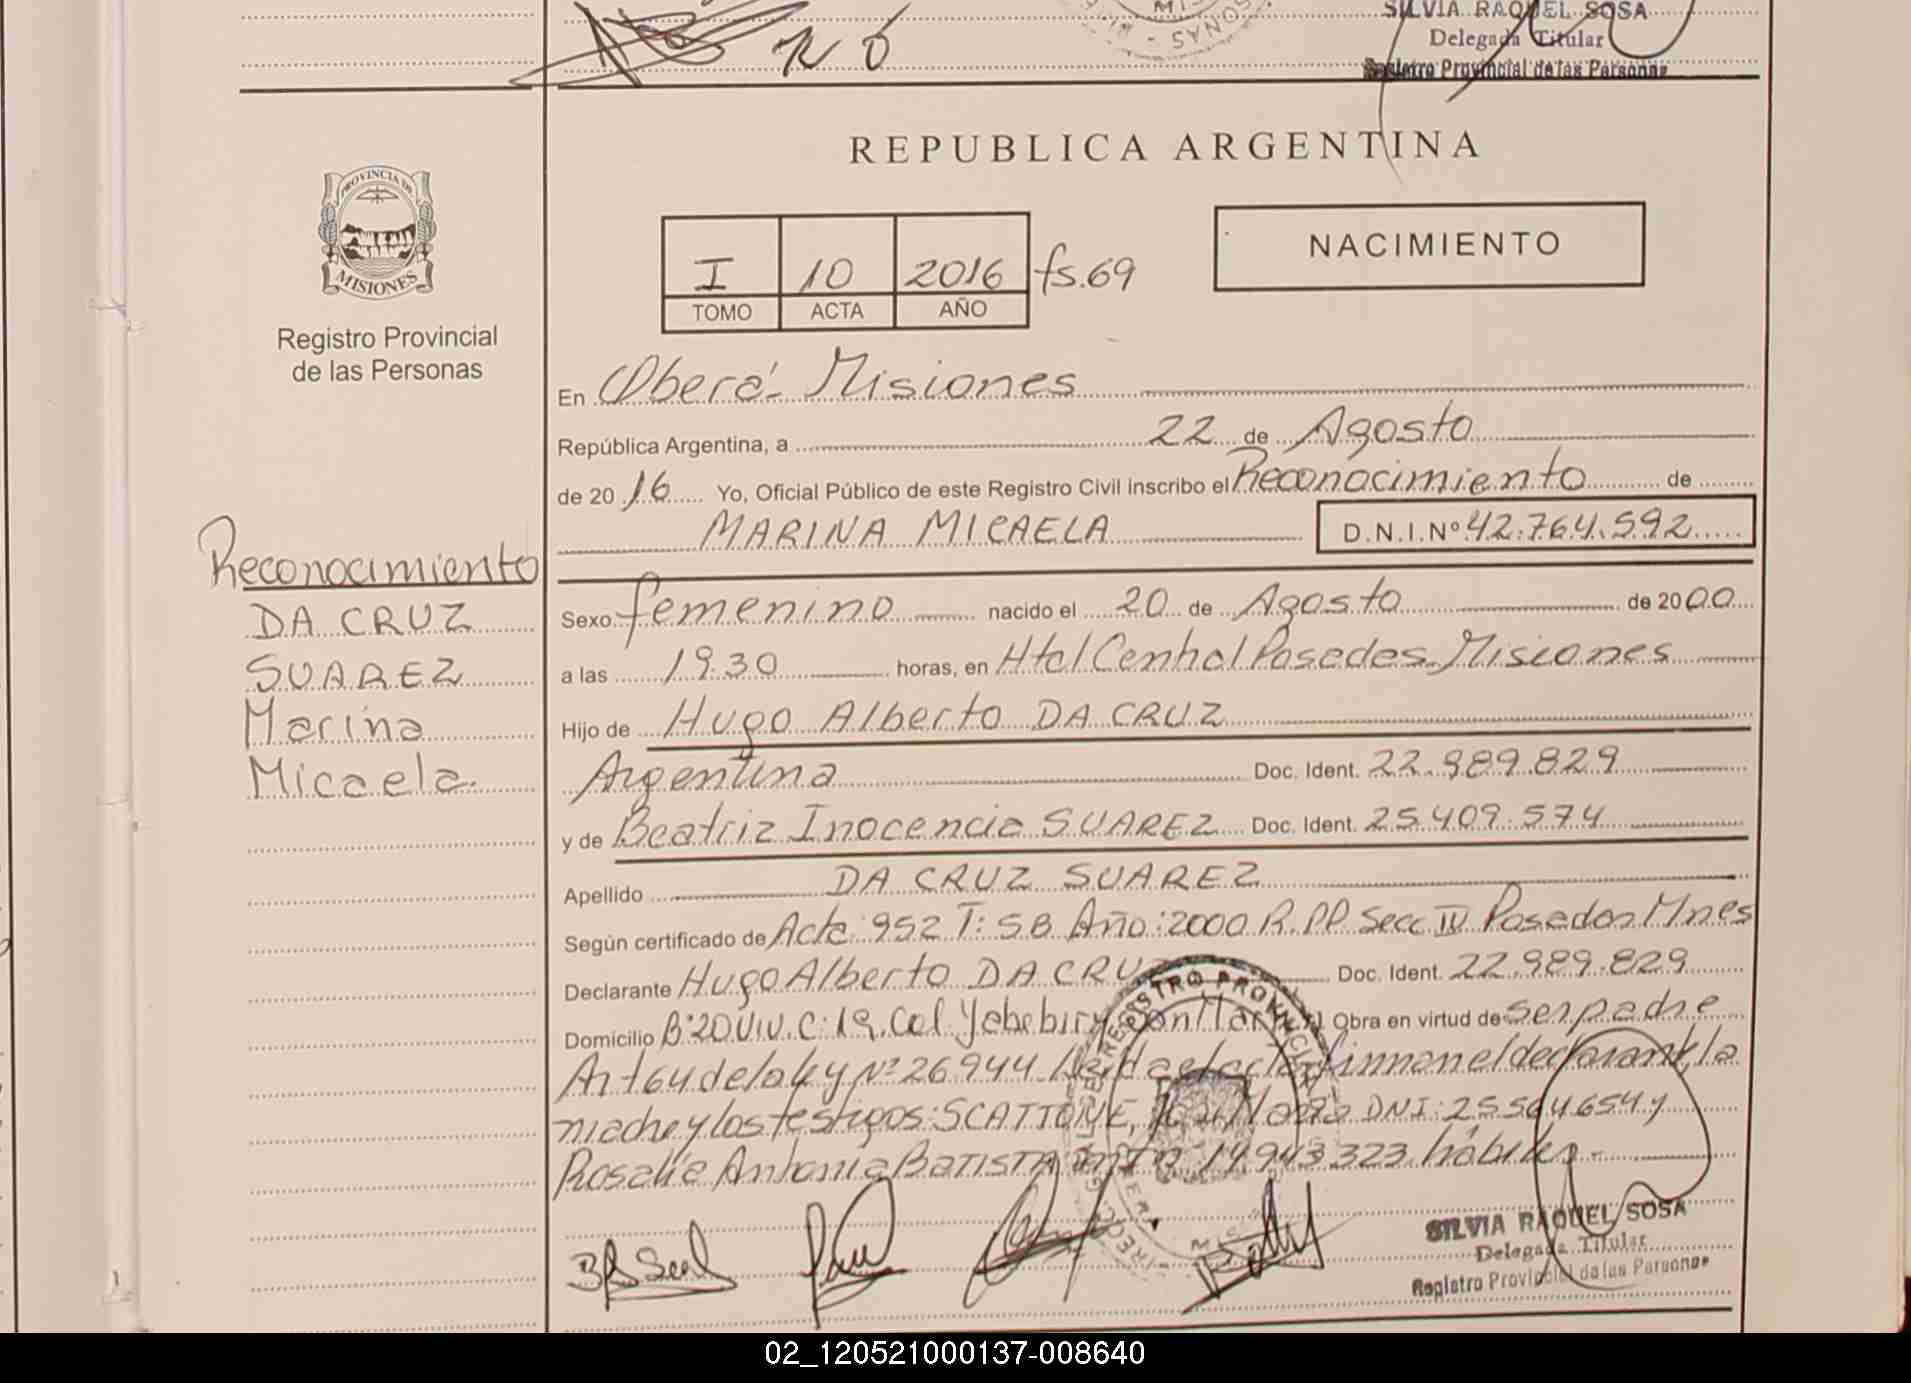 SILVIA RAQUEL SOSA
Delegada Titular
Registro Provincial de las Personas
PROVINCIA DE
MISIONES
Registro Provincial
de las Personas
REPUBLICA ARGENTINA
I 10 2016 fs.69
TOMO ACTA AÑO
NACIMIENTO
En Oberá - Misiones
República Argentina, a 22 de Agosto
de 20 16 Yo, Oficial Público de este Registro Civil inscribo el Reconocimiento de
MARINA MICAELA D.N.I.Nº 42.764.592
Reconocimiento
DA CRUZ
SUAREZ
Marina
Micaela.
Sexo femenino nacido el 20 de Agosto de 20 00
a las 19.30 horas, en Htal Central Posadas Misiones
Hijo de Hugo Alberto DA CRUZ
Argentina Doc. Ident. 22.989.829
y de Beatriz Inocencia SUAREZ Doc. Ident. 25.409.574
Apellido DA CRUZ SUAREZ
Según certificado de Acta: 952 T: 5B Año: 2000 R.PP. Secc IV Posadas Mnes
Declarante Hugo Alberto DA CRUZ Doc. Ident. 22.989.829
Domicilio B: 20 Viv. C: 19. Col Yabebiry Obra en virtud de ser padre
Art 64 de la ley Nº 26944 firman el declarante, la
madre y los testigos: SCATTONE, DNI: 25564654 y
Rosalia Antonia BATISTA 14943323 hábiles.-
SILVIA RAQUEL SOSA
Delegada Titular
Registro Provincial de las Personas
02_120521000137-008640